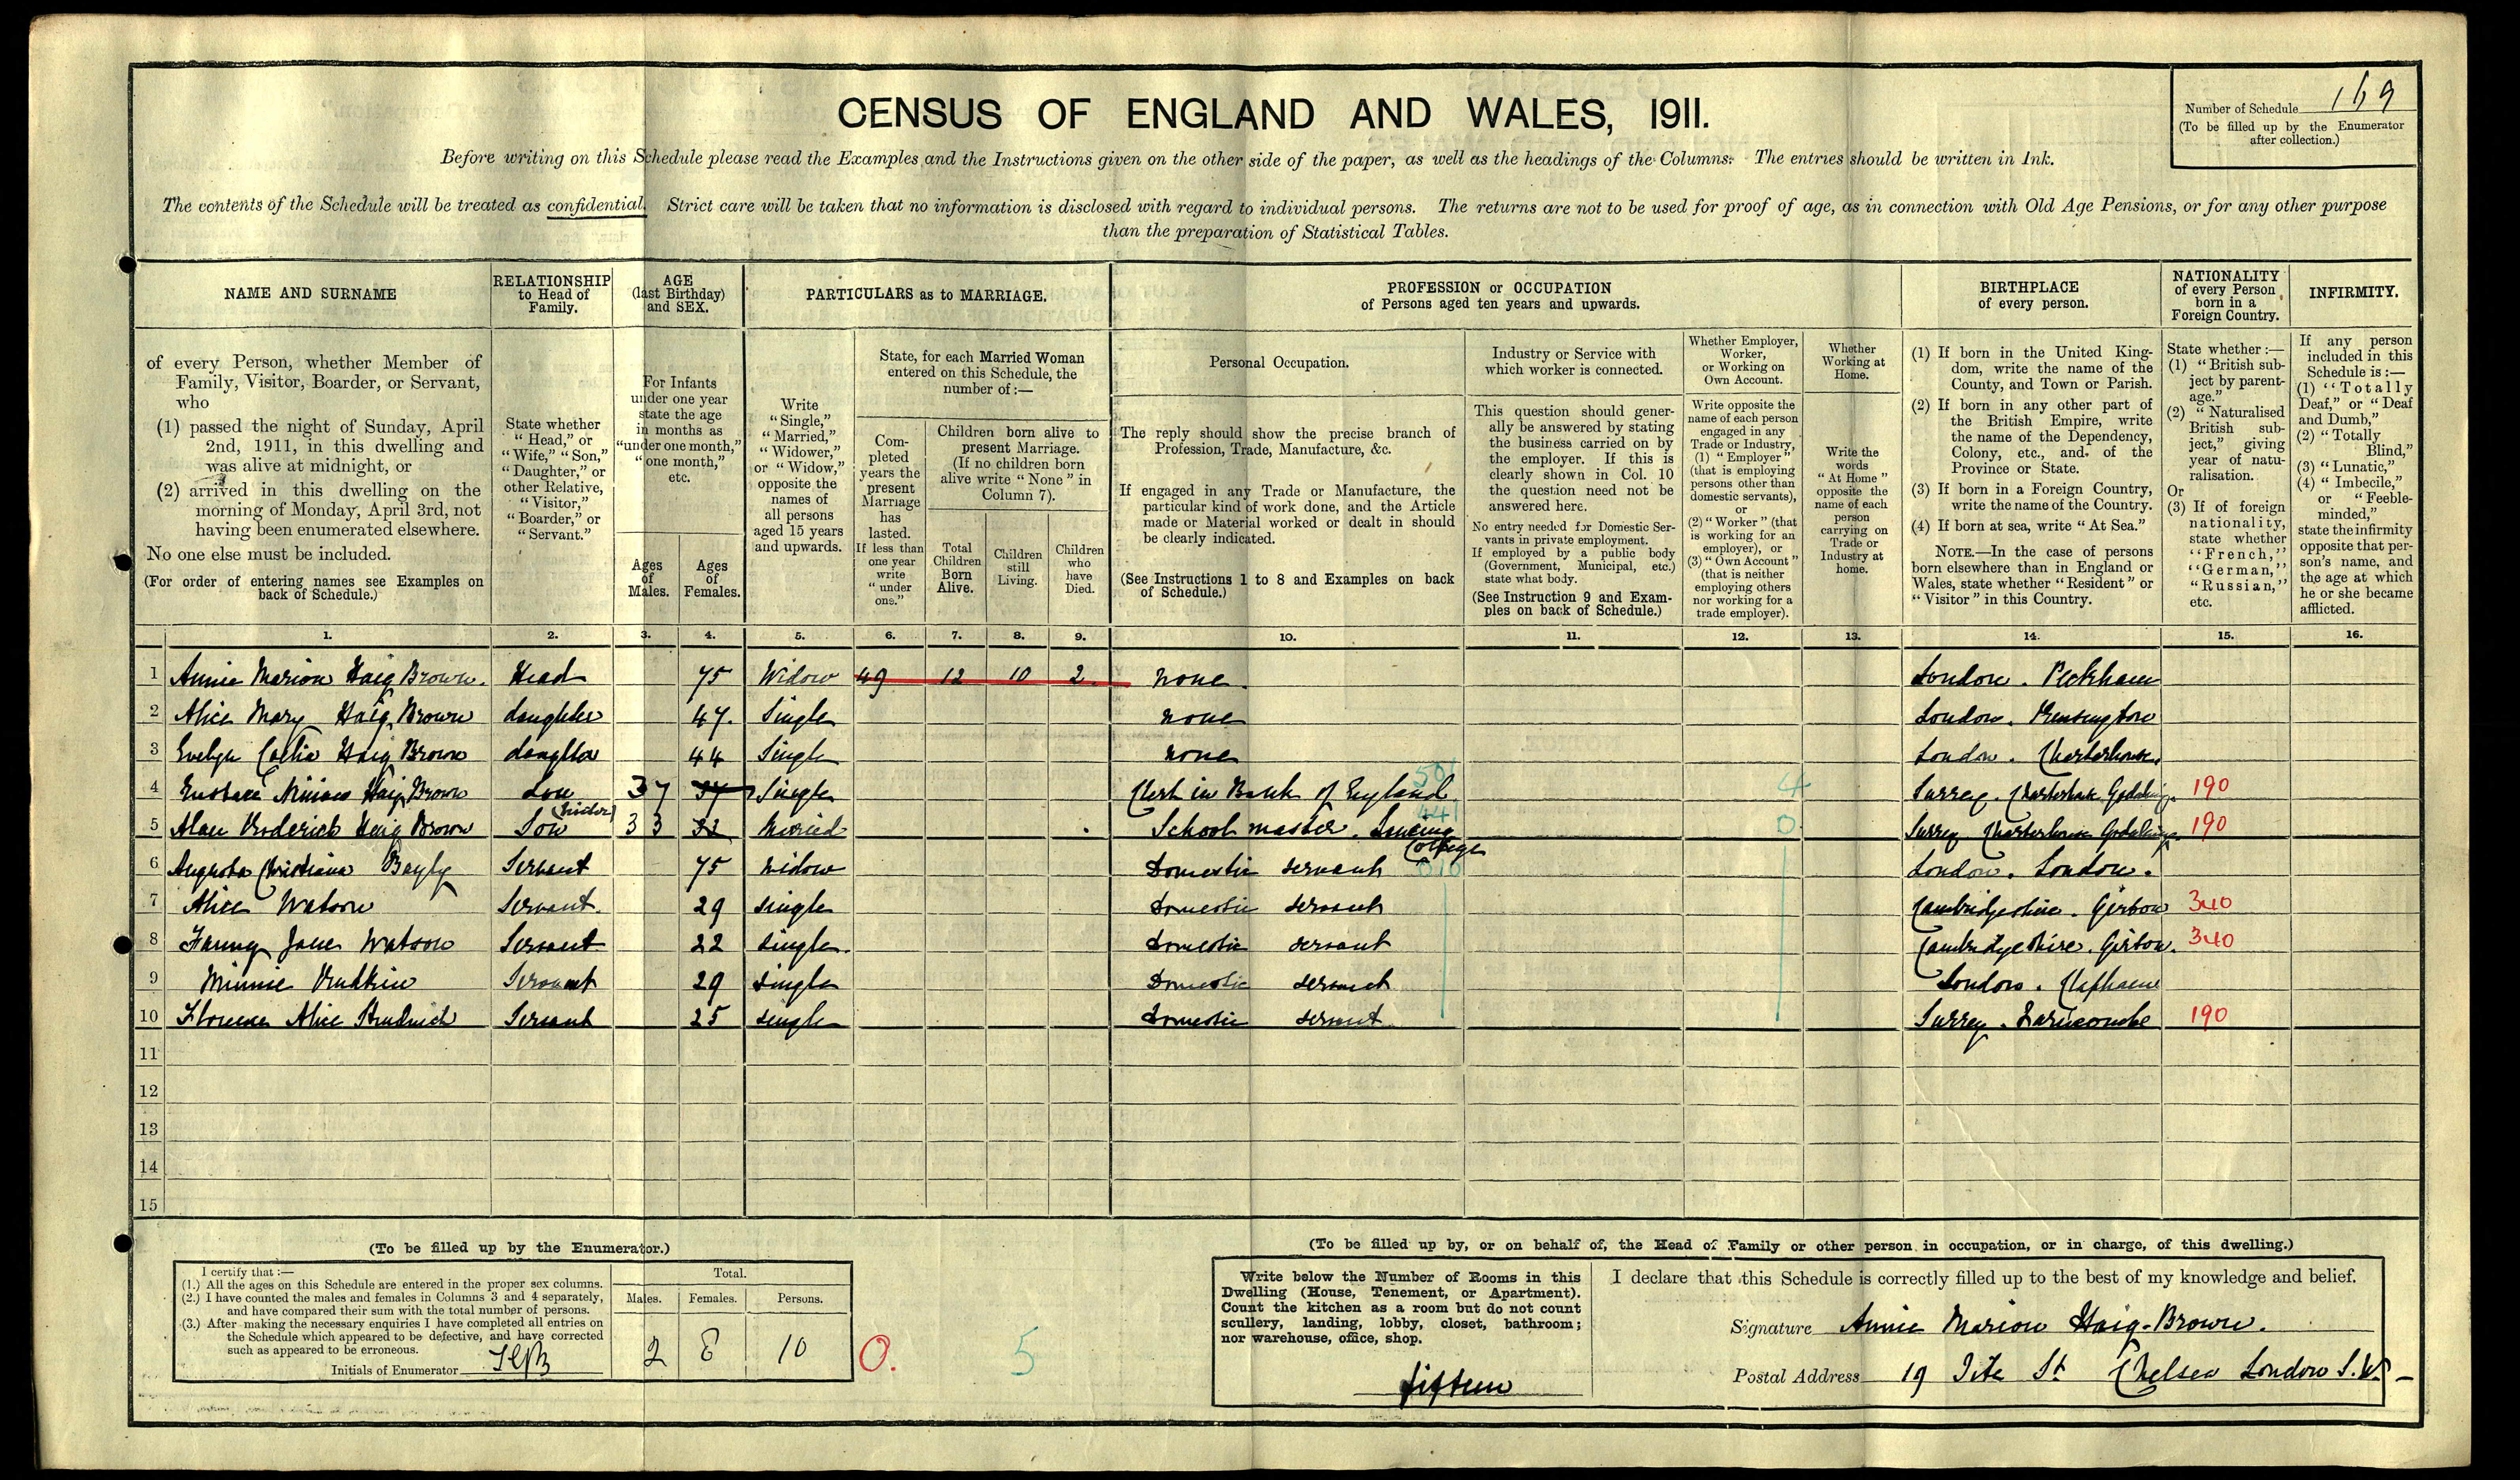 CENSUS OF ENGLAND AND WALES, 1911.
Number of Schedule 169
(To be filled up by the Enumerator
after collection.)
Before writing on this Schedule please read the Examples and the Instructions given on the other side of the paper, as well as the headings of the Columns. The entries should be written in Ink.
The contents of the Schedule will be treated as confidential. Strict care will be taken that no information is disclosed with regard to individual persons. The returns are not to be used for proof of age, as in connection with Old Age Pensions, or for any other purpose
than the preparation of Statistical Tables.
NAME AND SURNAME
of every Person, whether Member of
Family, Visitor, Boarder, or Servant,
who
(1) passed the night of Sunday, April
2nd, 1911, in this dwelling and
was alive at midnight, or
(2) arrived in this dwelling on the
morning of Monday, April 3rd, not
having been enumerated elsewhere.
No one else must be included.
(For order of entering names see Examples on
back of Schedule.)
RELATIONSHIP
to Head of
Family.
State whether
"Head," or
"Wife," "Son,"
"Daughter," or
other Relative,
"Visitor,"
"Boarder," or
"Servant."
AGE
(last Birthday)
and SEX.
For Infants
under one year
state the age
in months as
"under one month,"
"one month,"
etc.
Ages
of
Males.
Ages
of
Females.
PARTICULARS as to MARRIAGE.
Write
"Single,"
"Married,"
"Widower,"
or "Widow,"
opposite the
names of
all persons
aged 15 years
and upwards.
State, for each Married Woman
entered on this Schedule, the
number of:—
Com-
pleted
years the
present
Marriage
has
lasted.
If less than
one year
write
"under
one."
Children born alive to
present Marriage.
(If no children born
alive write "None" in
Column 7).
Total
Children
Born
Alive.
Children
still
Living.
Children
who
have
Died.
PROFESSION or OCCUPATION
of Persons aged ten years and upwards.
Personal Occupation.
The reply should show the precise branch of
Profession, Trade, Manufacture, &c.
If engaged in any Trade or Manufacture, the
particular kind of work done, and the Article
made or Material worked or dealt in should
be clearly indicated.
(See Instructions 1 to 8 and Examples on back
of Schedule.)
Industry or Service with
which worker is connected.
This question should gener-
ally be answered by stating
the business carried on by
the employer. If this is
clearly shown in Col. 10
the question need not be
answered here.
No entry needed for Domestic Ser-
vants in private employment.
If employed by a public body
(Government, Municipal, etc.)
state what body.
(See Instruction 9 and Exam-
ples on back of Schedule.)
Whether Employer,
Worker,
or Working on
Own Account.
Write opposite the
name of each person
engaged in any
Trade or Industry,
(1) "Employer"
(that is employing
persons other than
domestic servants),
or
(2) "Worker" (that
is working for an
employer), or
(3) "Own Account"
(that is neither
employing others
nor working for a
trade employer).
Whether
Working at
Home.
Write the
words
"At Home"
opposite the
name of each
person
carrying on
Trade or
Industry at
home.
BIRTHPLACE
of every person.
(1) If born in the United King-
dom, write the name of the
County, and Town or Parish.
(2) If born in any other part of
the British Empire, write
the name of the Dependency,
Colony, etc., and of the
Province or State.
(3) If born in a Foreign Country,
write the name of the Country.
(4) If born at sea, write "At Sea."
NOTE.—In the case of persons
born elsewhere than in England or
Wales, state whether "Resident" or
"Visitor" in this Country.
NATIONALITY
of every Person
born in a
Foreign Country.
State whether:—
(1) "British sub-
ject by parent-
age."
(2) "Naturalised
British sub-
ject," giving
year of natu-
ralisation.
Or
(3) If of foreign
nationality,
state whether
"French,"
"German,"
"Russian,"
etc.
INFIRMITY.
If any person
included in this
Schedule is:—
(1) "Totally
Deaf," or "Deaf
and Dumb,"
(2) "Totally
Blind,"
(3) "Lunatic,"
(4) "Imbecile,"
or "Feeble-
minded,"
state the infirmity
opposite that per-
son's name, and
the age at which
he or she became
afflicted.
1. 2. 3. 4. 5. 6. 7. 8. 9. 10. 11. 12. 13. 14. 15. 16.
1 Annie Marion Haig Brown. Head 75 Widow 49 12 10 2. none. London. Peckham
2 Alice Mary Haig Brown daughter 47. Single none London. Kensington
3 Evelyn Coelia Haig Brown daughter 44 Single none London. Charterhouse.
4 Eustace Ninian Haig Brown son 37 37 Single Clerk in Bank of England 4 Surrey. Charterhouse Godalming. 190
(visitor)
5 Alan Roderick Haig Brown Son 33 33 Married School master. Lancing College 0 Surrey Charterhouse Godalming. 190
6 Augusta Christiana Bayly Servant 75 widow Domestic servant London. London.
7 Alice Watson Servant. 29 single Domestic servant Cambridgeshire. Girton 340
8 Fanny Jane Watson Servant 22 single. Domestic servant Cambridgeshire. Girton. 340
9 Minnie Rudkin Servant 29 single Domestic servant London. Clapham
10 Florence Alice Strudwick Servant 25 single Domestic servant Surrey. Farncombe 190
11
12
13
14
15
(To be filled up by the Enumerator.)
I certify that:—
(1.) All the ages on this Schedule are entered in the proper sex columns.
(2.) I have counted the males and females in Columns 3 and 4 separately,
and have compared their sum with the total number of persons.
(3.) After making the necessary enquiries I have completed all entries on
the Schedule which appeared to be defective, and have corrected
such as appeared to be erroneous.
Initials of Enumerator
Total.
Males. Females. Persons.
2 8 10
0. 5
(To be filled up by, or on behalf of, the Head of Family or other person in occupation, or in charge, of this dwelling.)
Write below the Number of Rooms in this
Dwelling (House, Tenement, or Apartment).
Count the kitchen as a room but do not count
scullery, landing, lobby, closet, bathroom;
nor warehouse, office, shop.
fifteen
I declare that this Schedule is correctly filled up to the best of my knowledge and belief.
Signature Annie Marion Haig-Brown.
Postal Address 19 Tite St Chelsea London S.W.